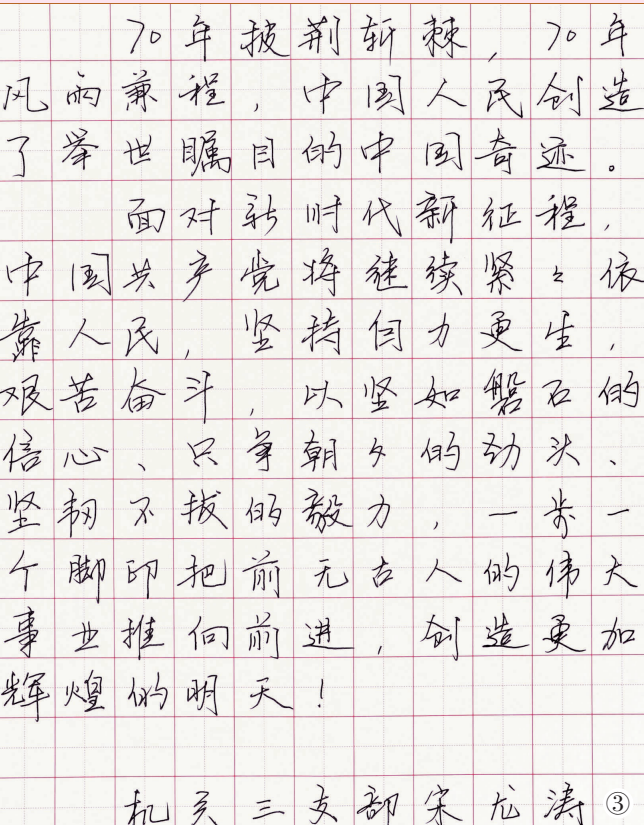 70年披荆斩棘，70年
风雨兼程，中国人民创造
了举世瞩目的中国奇迹。
面对新时代新征程，
中国共产党将继续紧々依
靠人民，坚持自力更生，
艰苦奋斗，以坚如磐石的
信心、只争朝夕的劲头、
坚韧不拔的毅力，一步一
个脚印把前无古人的伟大
事业推向前进，创造更加
辉煌的明天！
机关三支部宋尤涛 ③